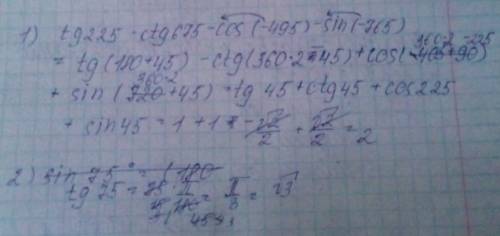 1) tg225 - ctg675 - cos(-495) - sin(-765)
= tg(180+45) - ctg(360·2-45) + cos(
360·2-225
+ sin(720+45) = tg 45 + ctg45 + cos225
360·2
+ sin45 = 1 + 1 + -√2/2 + √2/2 = 2
2) sin 75° = (180
tg 75 = = π/3 = √3